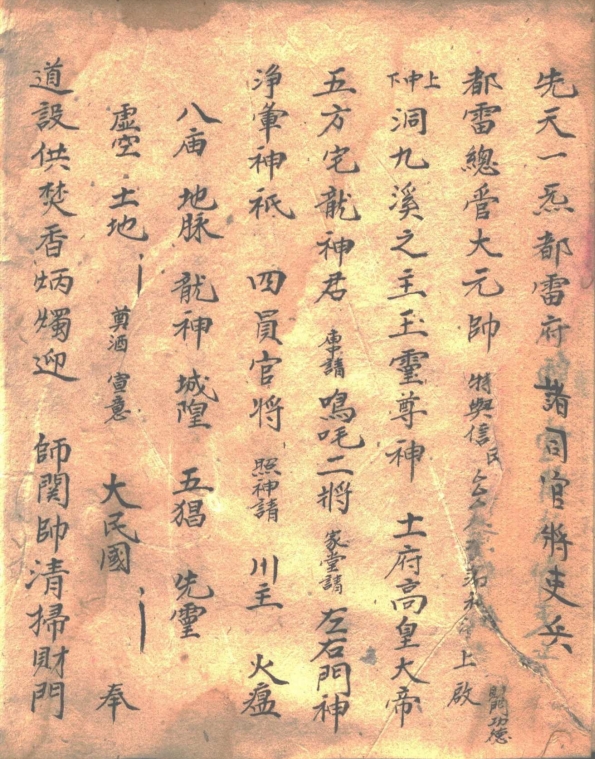 先天一炁都雷府諸司官將吏兵
都雷總管大元帥 特與信民 上啟 財門功德
上中下洞九溪之主玉靈尊神 土府高皇大帝
五方宅龍神君 東請 鳴吒二將 家堂請 左右門神
淨葷神祇 四員官將 照神請 川主 火瘟
八庙 地脉 龍神 城隍 五猖 先靈
虛空 土地 奠酒 宣意 大民國 奉
道設供焚香炳燭迎 師関帥清掃財門